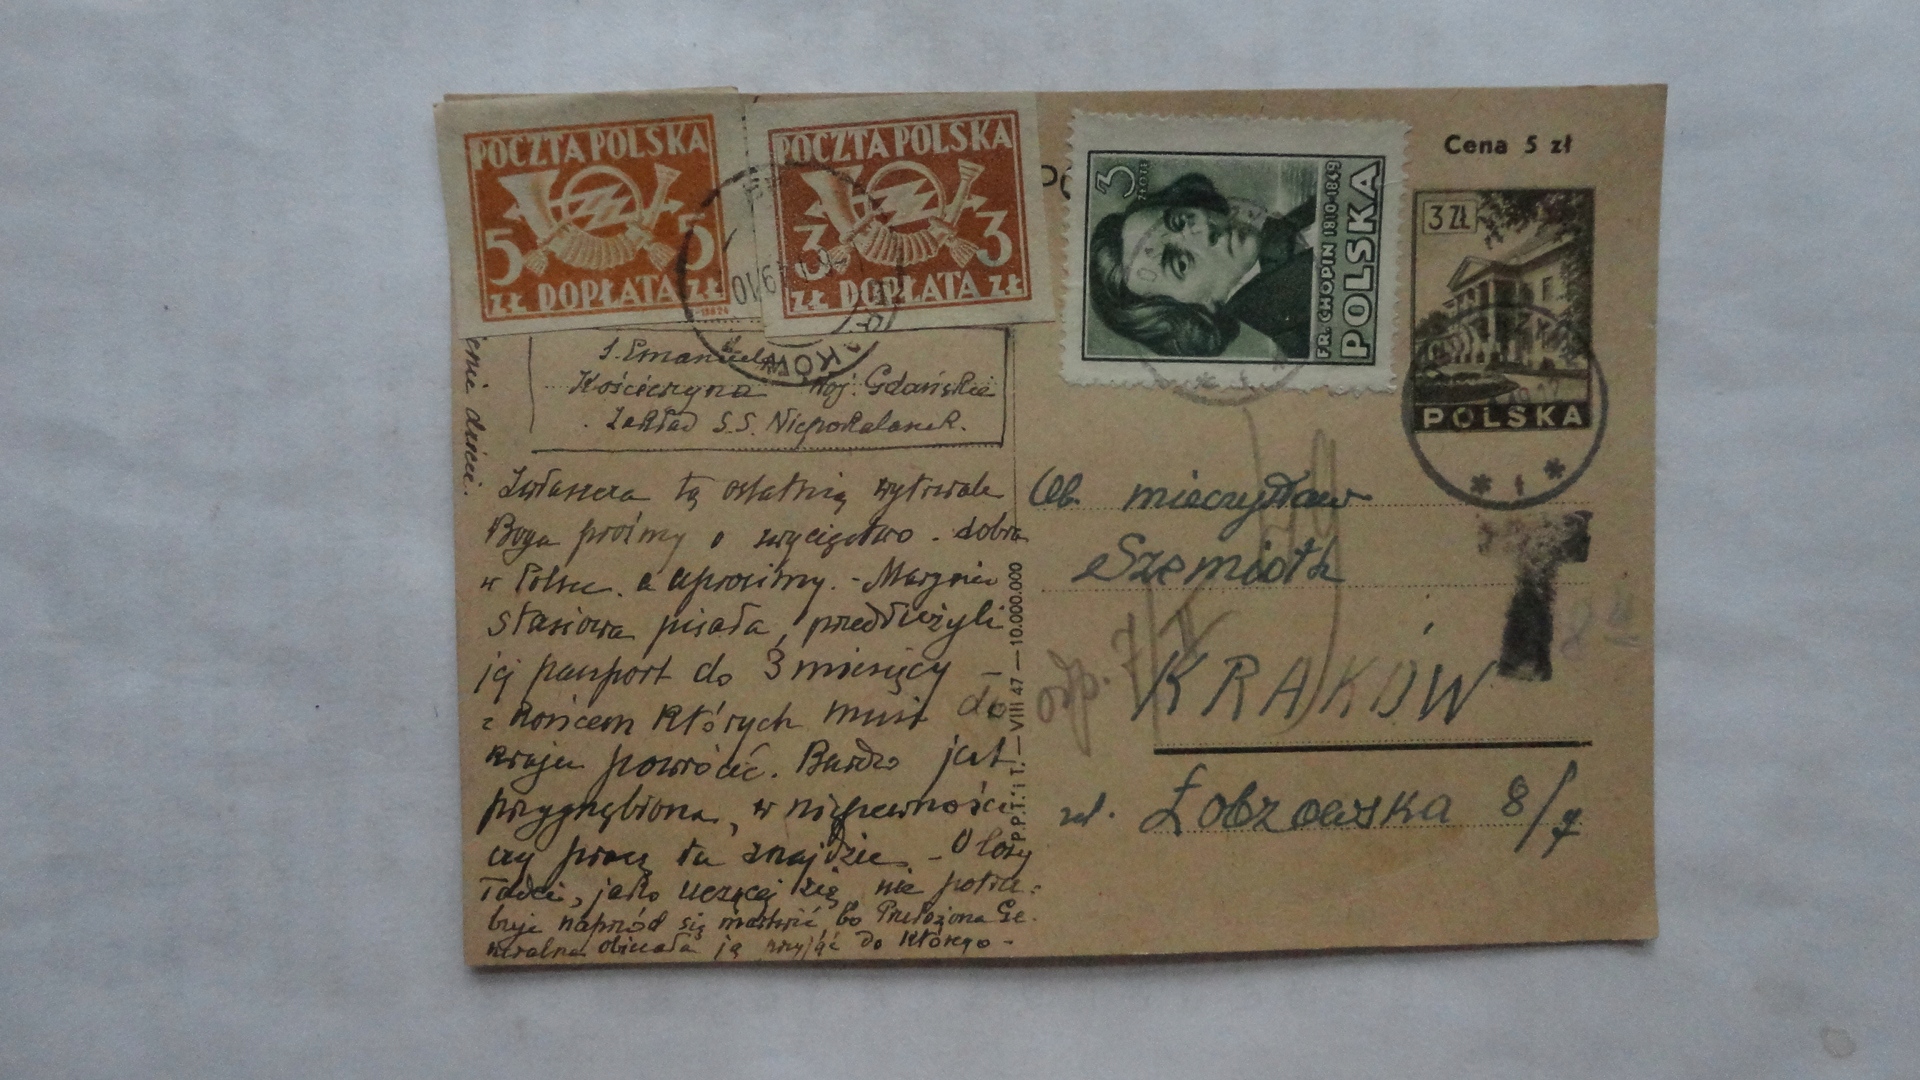 POCZTA POLSKA
5 5
ZŁ DOPŁATA ZŁ
POCZTA POLSKA
3 3
ZŁ DOPŁATA ZŁ
3 ZŁOTE
FR. CHOPIN 1810-1849
POLSKA
Cena 5 zł
3 ZŁ
POLSKA
KRAKÓW
S. Emanuela
Kościerzyna Woj: Gdańskie
Zakład S.S. Niepokalanek.
Zwłaszcza tą ostatnią wytrwale
Boga prośmy o zwycięstwo dobra
w Polsce a uprosimy. - Marynia
Stasiowa pisała, przedłużyli
jej paszport do 3 miesięcy -
z końcem których musi do
kraju powrócić. Bardzo jest
przygnębiona, w niepewności
czy pracę tu znajdzie - O losy
Tadzi, jako uczącej się, nie potrze-
buje naprzód się martwić, bo Przełożona Ge-
neralna obiecała ją przyjąć do którego -
P.P.T. i T. — VIII 47 — 10.000.000
Ob. Mieczysław
Szemioth
KRAKÓW
ul. Łobzowska 8/7
odp. 7/II 49
T